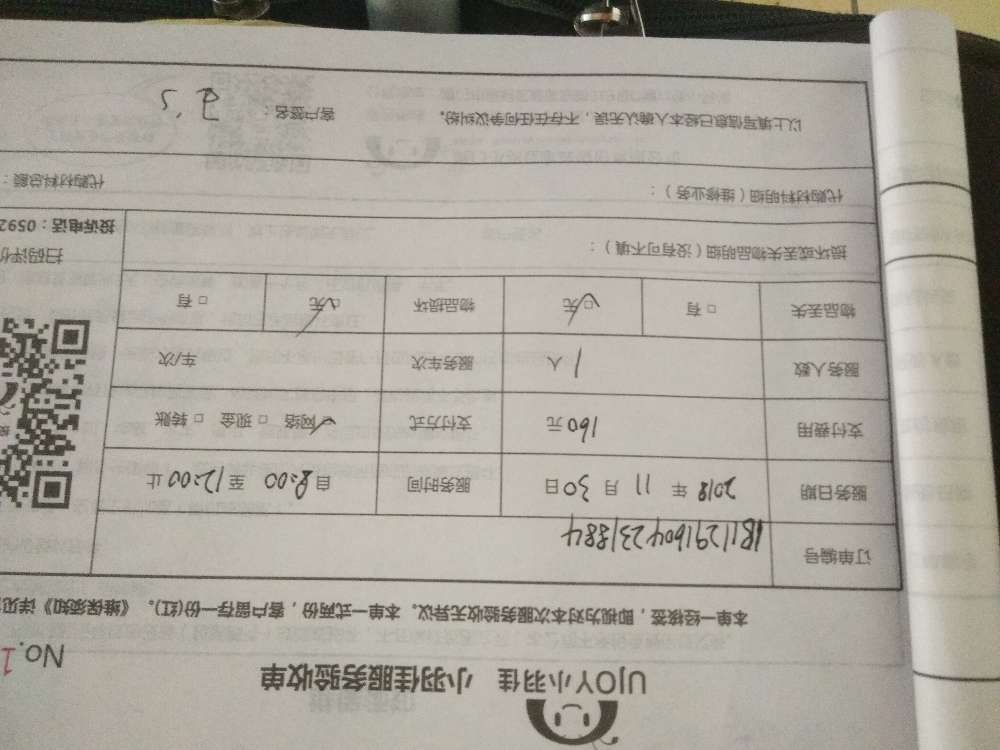 UJOY小羽佳 小羽佳服务验收单
No.1
本单一经接签，即视为对本次服务验收无异议。本单一式两份，客户留存一份(红)。《维保须知》详见
订单编号
服务日期 2018 年 11 月 30 日 服务时间 自 8:00 至 12:00 止
支付费用 160 元 支付方式 ☑ 网络 □ 现金 □ 转账
服务人数 1 人 服务车次 车/次
物品丢失 □ 有 ☑ 无 物品损坏 ☑ 无 □ 有
损坏或丢失物品明细（没有可不填）：
代购材料明细（维修业务）：
代购材料总额：
以上填写信息已经本人确认无误，不存在任何争议纠纷。
客户签名：
扫码评价
投诉电话：0592